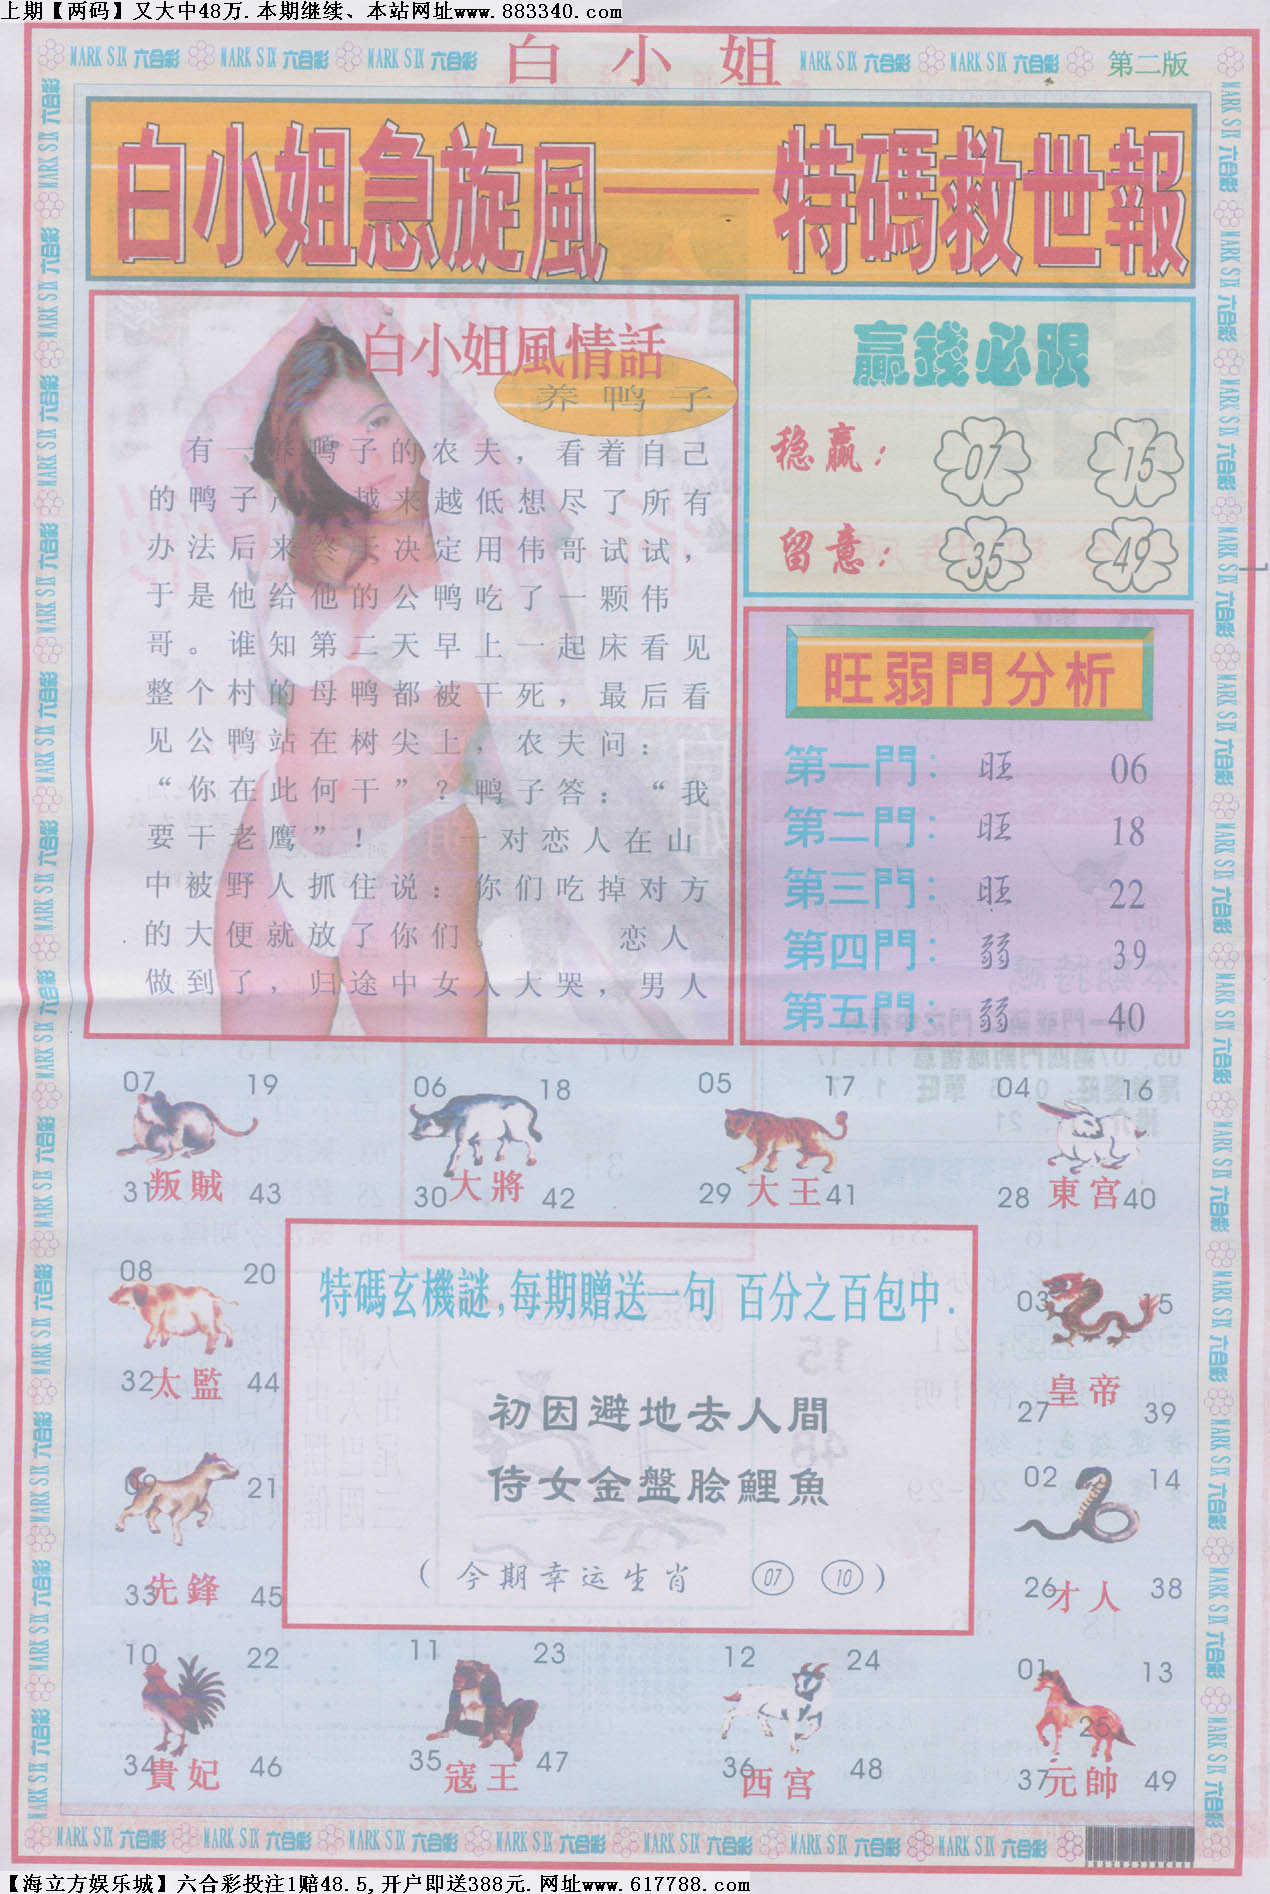 上期【两码】又大中48万.本期继续、本站网址www.883340.com
MARK SIX 六合彩 MARK SIX 六合彩 MARK SIX 六合彩
白小姐
MARK SIX 六合彩 MARK SIX 六合彩
第二版
白小姐急旋風——特碼救世報
白小姐風情話
养鸭子
有一养鸭子的农夫，看着自己
的鸭子产 越来越低想尽了所有
办法后来终于决定用伟哥试试，
于是他给他的公鸭吃了一颗伟
哥。谁知第二天早上一起床看见
整个村的母鸭都被干死，最后看
见公鸭站在树尖上，农夫问：
“你在此何干”？鸭子答：“我
要干老鹰”！ 一对恋人在山
中被野人抓住说：你们吃掉对方
的大便就放了你们。 恋人
做到了，归途中女人大哭，男人
贏錢必跟
稳赢： 07 15
留意： 35 49
旺弱門分析
第一門： 旺 06
第二門： 旺 18
第三門： 旺 22
第四門： 弱 39
第五門： 弱 40
07 19
31 叛賊 43
06 18
30 大將 42
05 17
29 大王 41
04 16
28 東宫 40
08 20
32 太監 44
03 15
皇帝
27 39
09 21
33 先鋒 45
02 14
26 才人 38
特碼玄機謎,每期贈送一句 百分之百包中.
初因避地去人間
侍女金盤膾鯉魚
(今期幸运生肖 07 10)
10 22
34 貴妃 46
11 23
35 寇王 47
12 24
36 西宫 48
01 13
25
37 元帥 49
MARK SIX 六合彩 MARK SIX 六合彩 MARK SIX 六合彩 MARK SIX 六合彩 MARK SIX 六合彩 MARK SIX 六合彩 MARK SIX 六合彩
【海立方娱乐城】六合彩投注1赔48.5,开户即送388元.网址www.617788.com